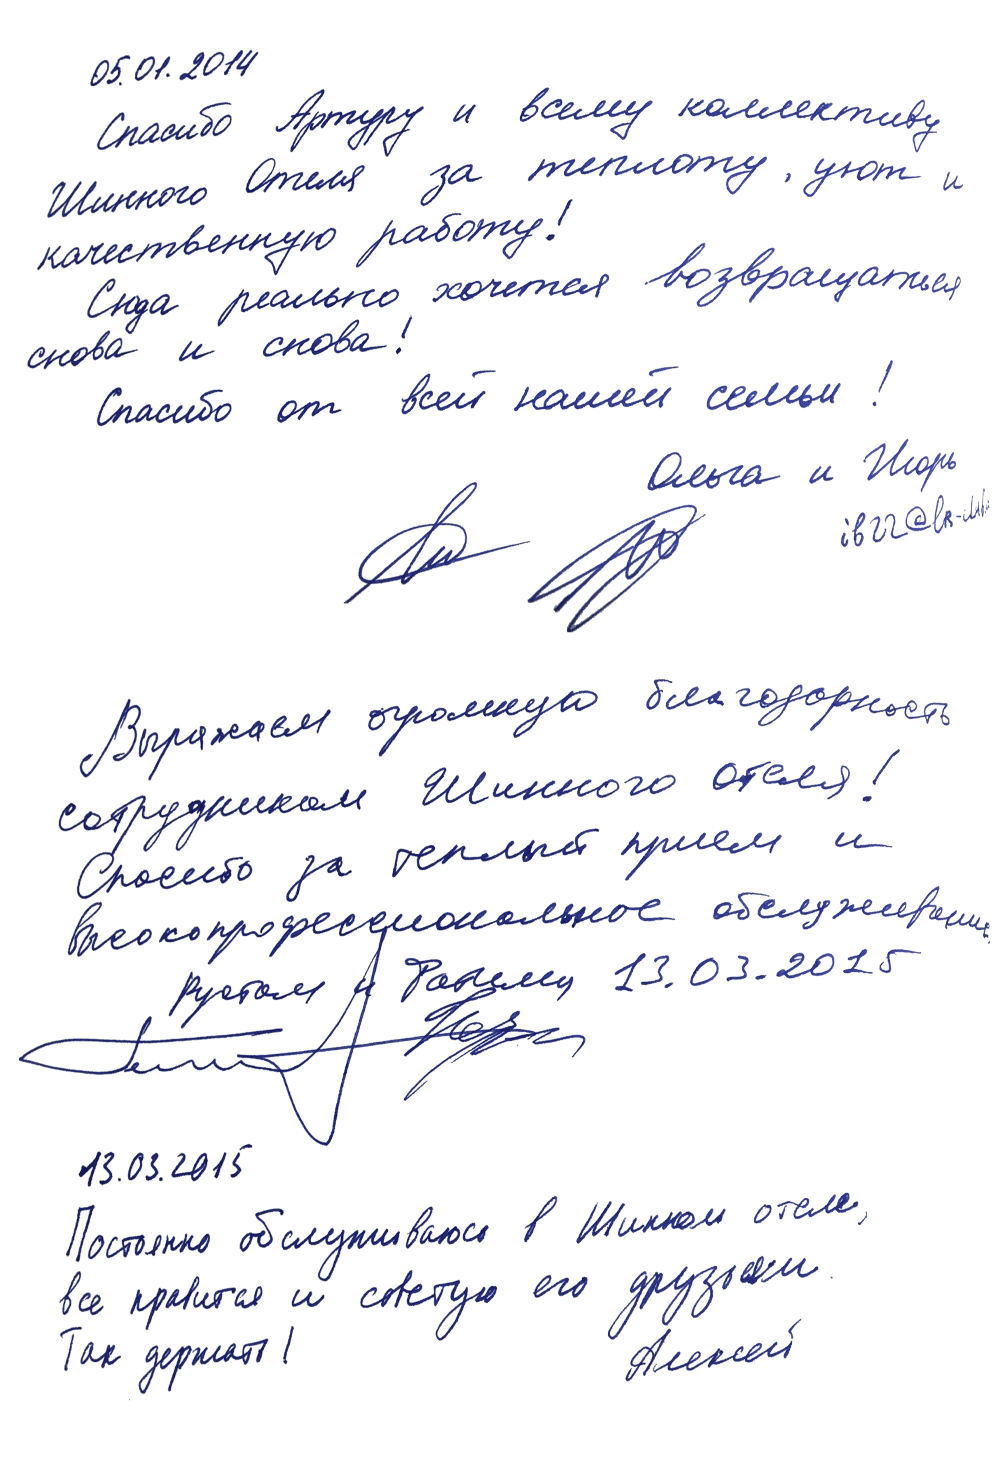 05.01.2014
Спасибо Артуру и всему коллективу
Шинного Отеля за теплоту, уют и
качественную работу!
Сюда реально хочется возвращаться
снова и снова!
Спасибо от всей нашей семьи!
Ольга и Игорь
Выражаем огромную благодарность
сотрудникам Шинного отеля!
Спасибо за теплый прием и
высокопрофессиональное обслуживание.
Рустам и 13.03.2015
13.03.2015
Постоянно обслуживаюсь в Шинном отеле,
все нравится и советую его друзьям.
Так держать!
Алексей